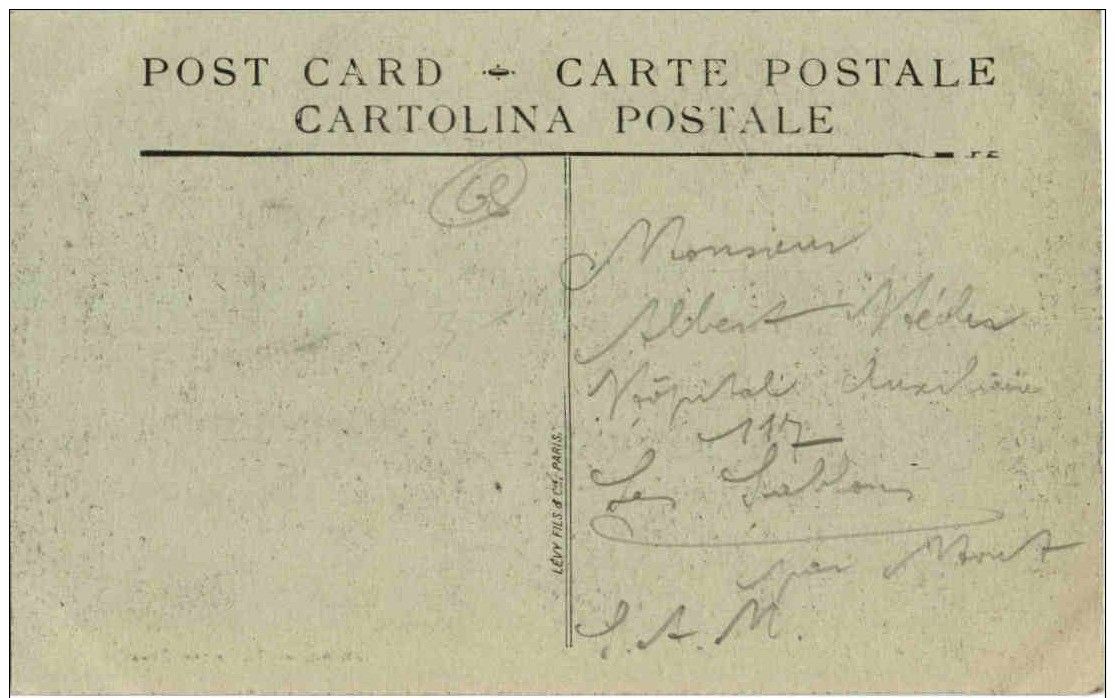 POST CARD - CARTE POSTALE
CARTOLINA POSTALE
68
LÉVY FILS & Cie, PARIS.
Monsieur
Albert
Hôpital Auxiliaire
117
Les Sablons
par Moret
S. A. M.